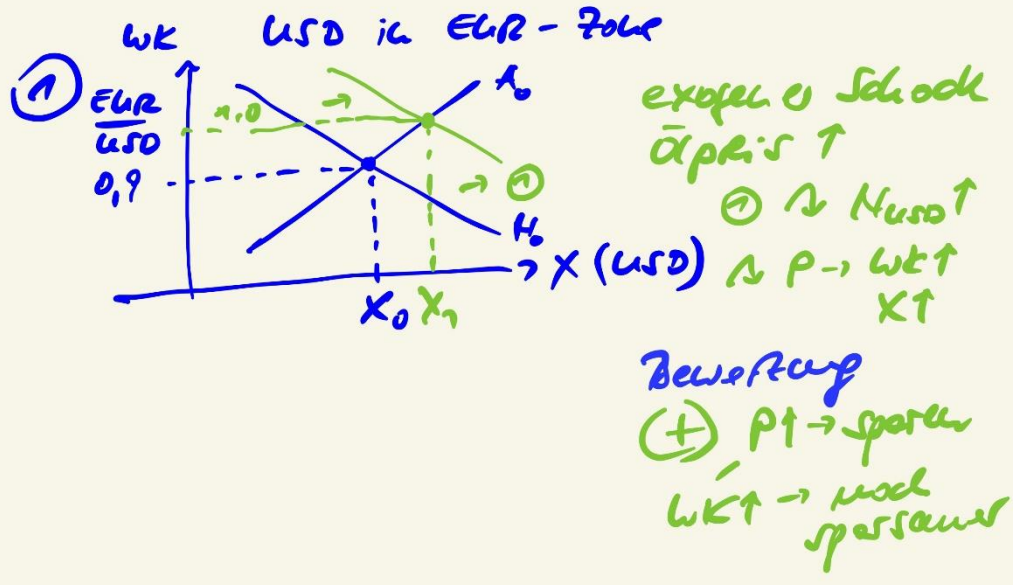 WK USD in EUR-Zone
① EUR
USD
0,9
1,0
→
A₀
→ ①
N₀
→ X (USD)
X₀ X₁
exogener Schock
Ölpreis ↑
① ↷ N_USD ↑
↷ P → WK ↑
X ↑
Bewertung
(+) P↑ → sparen
WK↑ → noch
sparsamer